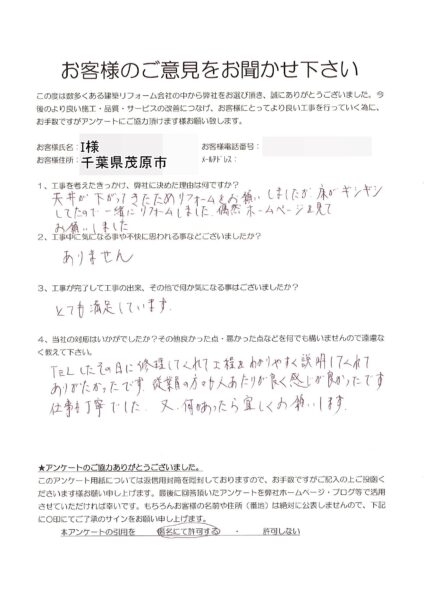 お客様のご意見をお聞かせ下さい
この度は数多くある建築リフォーム会社の中から弊社をお選び頂き、誠にありがとうございました。今
後のより良い施工・品質・サービスの改善につなげ、お客様にとってより良い工事を行っていく為に、
お手数ですがアンケートにご協力頂けます様お願い致します。
お客様氏名：I様 お客様電話番号：
お客様住所：千葉県茂原市 メールアドレス：
1、工事を考えたきっかけ、弊社に決めた理由は何ですか？
天井が下がってきたためリフォームをお願いしましたが床がギシギシ
してたので一緒にリフォームしました。偶然ホームページを見て
お願いしました
2、工事中に気になる事や不快に思われる事などございましたか？
ありません
3、工事が完了して工事の出来、その他で何か気になる事はございましたか？
とても満足しています。
4、当社の対応はいかがでしたか？その他良かった点・悪かった点などを何でも構いませんので遠慮な
く教えて下さい。
TELしたその日に修理してくれて工程もわかりやすく説明してくれて
ありがたかったです。従業員の方も人あたりが良く感じが良かったです
仕事も丁寧でした。又、何かあったら宜しくお願いします。
★アンケートのご協力ありがとうございました。
このアンケート用紙については返信用封筒を同封しておりますので、お手数ですがご記入の上ご投函く
ださいます様お願い申し上げます。最後に回答頂いたアンケートを弊社ホームページ・ブログ等で活用
させていただければ幸いです。もちろんお客様の名前や住所（番地）は絶対に公表しませんので、下記
に〇印にてご了承のサインをお願い申し上げます。
本アンケートの引用を 匿名にて許可する ・ 許可しない